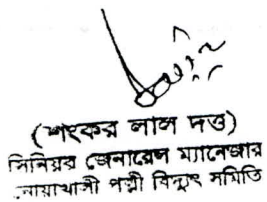 (শংকর লাল দত্ত)
সিনিয়র জেনারেল ম্যানেজার
নোয়াখালী পল্লী বিদ্যুৎ সমিতি